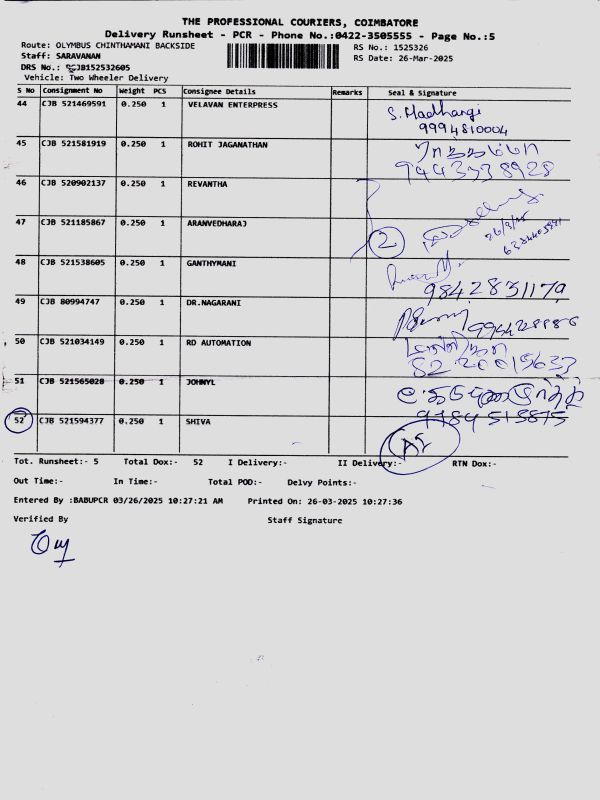 THE PROFESSIONAL COURIERS, COIMBATORE
Delivery Runsheet - PCR - Phone No.:0422-3505555 - Page No.:5
Route: OLYMBUS CHINTHAMANI BACKSIDE RS No.: 1525326
Staff: SARAVANAN RS Date: 26-Mar-2025
DRS No.: CJB152532605
Vehicle: Two Wheeler Delivery
S No Consignment No Weight PCS Consignee Details Remarks Seal & Signature
44 CJB 521469591 0.250 1 VELAVAN ENTERPRESS S. Madhangi
9994810004
45 CJB 521581919 0.250 1 ROHIT JAGANATHAN
9443338928
46 CJB 520902137 0.250 1 REVANTHA
47 CJB 521185867 0.250 1 ARANVEDHARAJ 2
26/3/25
48 CJB 521538605 0.250 1 GANTHYMANI
9842831179
49 CJB 80994747 0.250 1 DR.NAGARANI
50 CJB 521034149 0.250 1 RD AUTOMATION
51 CJB 521565028 0.250 1 JOHNYL
52 CJB 521594377 0.250 1 SHIVA
Tot. Runsheet:- 5 Total Dox:- 52 I Delivery:- II Delivery:- RTN Dox:-
Out Time:- In Time:- Total POD:- Delvy Points:-
Entered By :BABUPCR 03/26/2025 10:27:21 AM Printed On: 26-03-2025 10:27:36
Verified By Staff Signature